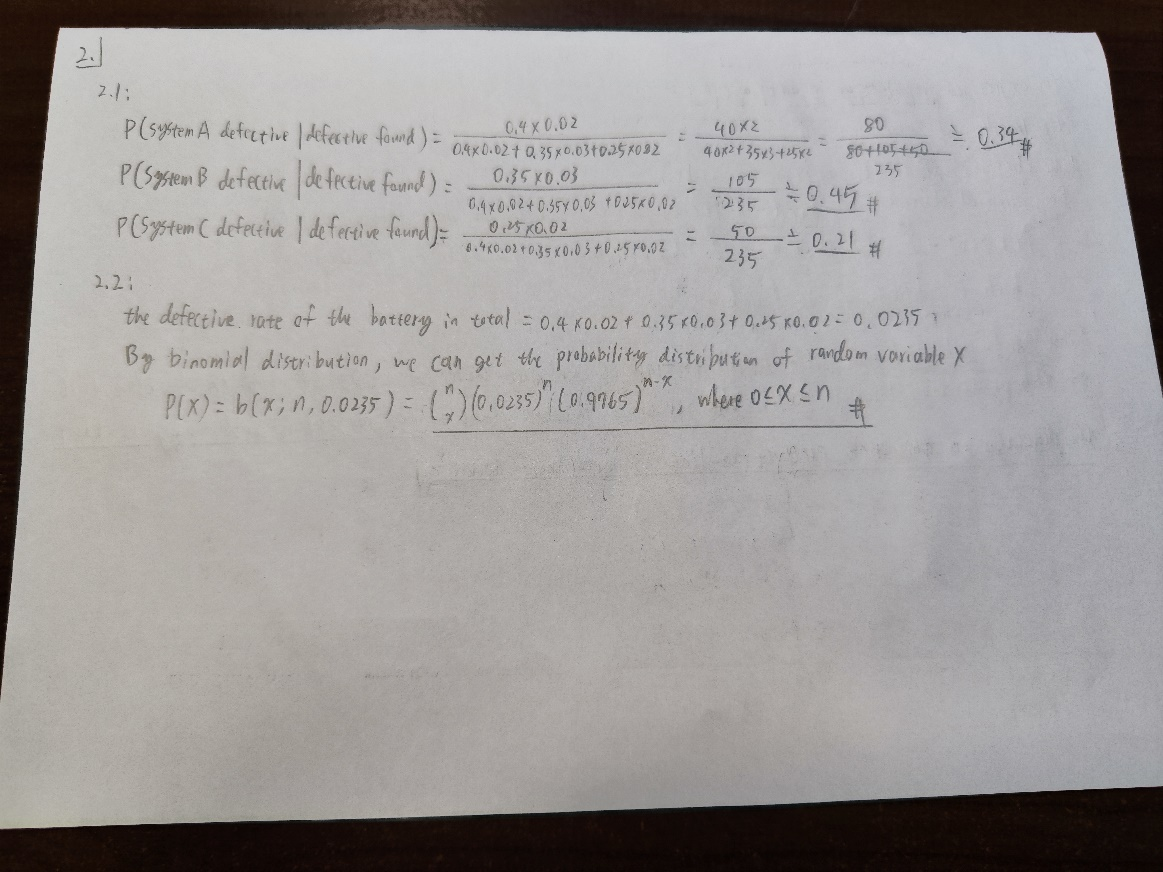 2.
2.1:
P(system A defective | defective found) = 0.4×0.02 / 0.4×0.02+0.35×0.03+0.25×0.02 = 40×2 / 40×2+35×3+25×2 = 80 / 80+105+50 235 ≒ 0.34 #
P(System B defective | defective found) = 0.35×0.03 / 0.4×0.02+0.35×0.03+0.25×0.02 = 105 / 235 ≒ 0.45 #
P(System C defective | defective found) = 0.25×0.02 / 0.4×0.02+0.35×0.03+0.25×0.02 = 50 / 235 ≒ 0.21 #
2.2:
the defective rate of the battery in total = 0.4×0.02+0.35×0.03+0.25×0.02 = 0.0235
By binomial distribution, we can get the probability distribution of random variable X
P(X) = b(x; n, 0.0235) = (n x)(0.0235)^n (0.9765)^{n-x}, where 0≤X≤n #